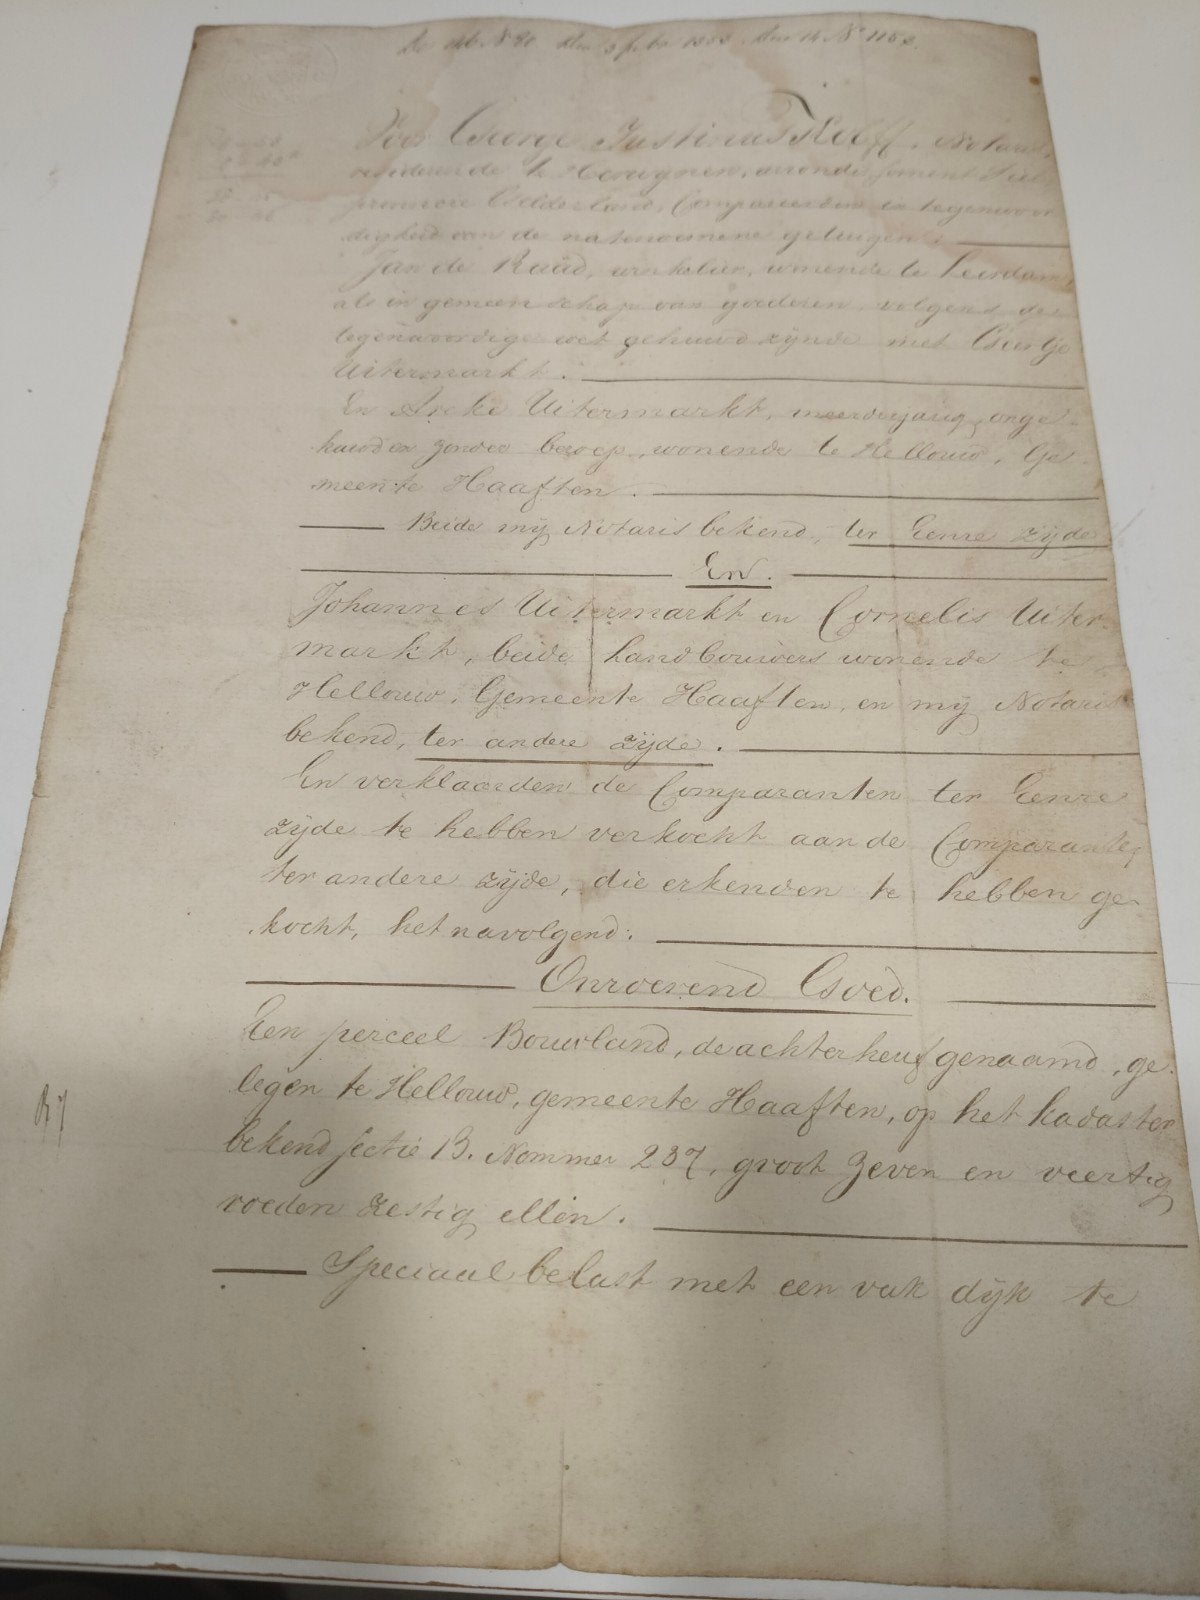 N° 1162.
Voor George Justinus Kolff, Notaris,
residerende te Herwijnen, arrondissement Tiel
provincie Gelderland, Compareerden in tegenwoor
digheid van de natenoemene getuigen:
Jan de Raad, winkelier, wonende te Leerdam,
als in gemeenschap van goederen, volgens de
tegenwoordige wet gehuwd zijnde met Geertje
Uitermarkt.
En Aeke Uitermarkt, meerderjarig, onge-
huwd en zonder beroep, wonende te Hellouw, Ge
meente Haaften.
Beide mij Notaris bekend, ter Eenre zijde
En.
Johannes Uitermarkt en Cornelis Uiter-
markt, beide landbouwers wonende te
Hellouw, Gemeente Haaften, en mij Notaris
bekend, ter andere zijde.
En verklaarden de Comparanten ter Eenre
zijde te hebben verkocht aan de Comparante,
ter andere zijde, die erkenden te hebben ge-
kocht, het navolgend:
Onroerend Goed.
Een perceel Bouwland, de achterheuf genaamd, ge-
legen te Hellouw, gemeente Haaften, op het kadaster
bekend sectie B. Nommer 237, groot Zeven en veertig
roeden zestig ellen.
Speciaal belast met een vak dijk te